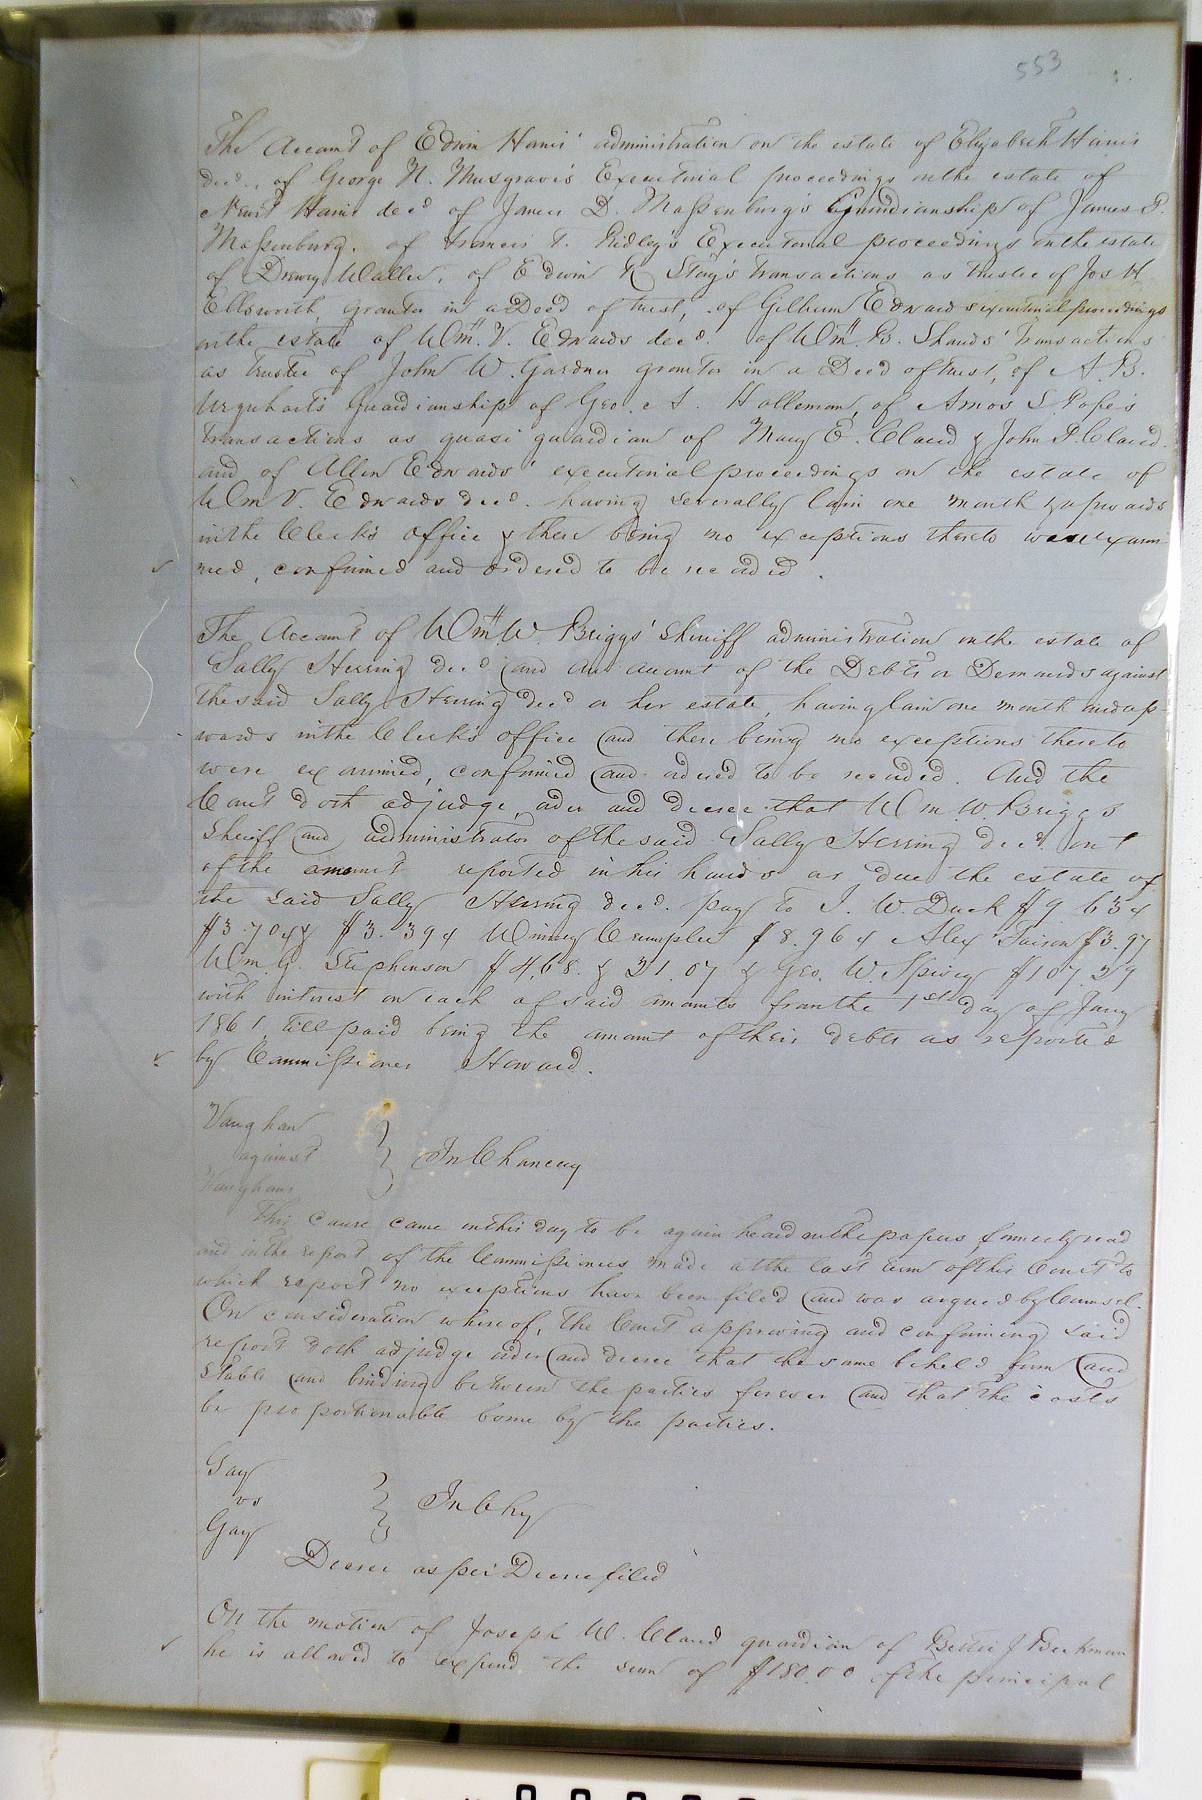 553
The Account of Edwin Harris' administration on the estate of Elizabeth Harris
decd., of George N. Musgrave's Executorial proceedings on the estate of
Newit Harris decd of James D. Massenburg's Guardianship of James P.
Massenburg. of Francis T. Ridley's Executorial proceedings on the estate
of Drewry Waller, of Edwin R Story's transactions as trustee of Jos H
Ellsworth, grantor in a Deed of trust, of Gilliam Edwards executorial proceedings
on the estate of Wm. V. Edwards decd. of Wm. B. Shands' transactions
as trustee of John W. Gardner grantor in a Deed of trust, of A. B.
Urquhart's Guardianship of Geo. A. Holleman, of Amos S. Pope's
transactions as quasi guardian of Mary E. Claud & John P. Claud.
and of Allen Edwards' executorial proceedings on the estate of
Wm V. Edwards decd. having severally lain one month & upwards
in the Clerk's office & there being no exceptions thereto were exam
ined, confirmed and ordered to be recorded.
The Account of Wm. W. Briggs' Sheriff administration on the estate of
Sally Herring decd and an account of the Debts or Demands against
the said Sally Herring decd or her estate, having lain one month and up-
wards in the Clerk's office and there being no exceptions thereto
were examined, confirmed and ordered to be recorded. And the
Court doth adjudge, order and decree that Wm. W. Briggs
Sheriff and administrator of the said Sally Herring decd. out
of the amount reported in his hands as due the estate of
the said Sally Herring decd. pay to J. W. Duck $9.63 &
$3.70 & $3.39 & Winney Crumpler $8.96 & Alex Faison $3.97
Wm. G. Stephenson $4,68. & 31.07 & Geo. W. Spivey $107.39
with interest on each of said amounts from the 1st day of Jany
1861 till paid being the amount of their debts as reported
by Commissioner Howard.
Vaughan
against } In Chancery
Vaughans
This cause came on this day to be again heard on the papers formerly read
and on the report of the Commissioners made at the last term of this Court to
which report no exceptions have been filed and was argued by Counsel.
On consideration whereof, the Court approving and confirming said
report doth adjudge order and decree that the same be held firm and
stable and binding between the parties forever and that the costs
be proportionable borne by the parties.
Gay
vs } In Chy
Gay
Decree as per Decree filed
On the motion of Joseph W. Claud guardian of Bettie J Beckman
he is allowed to expend the sum of $180.00 of the principal